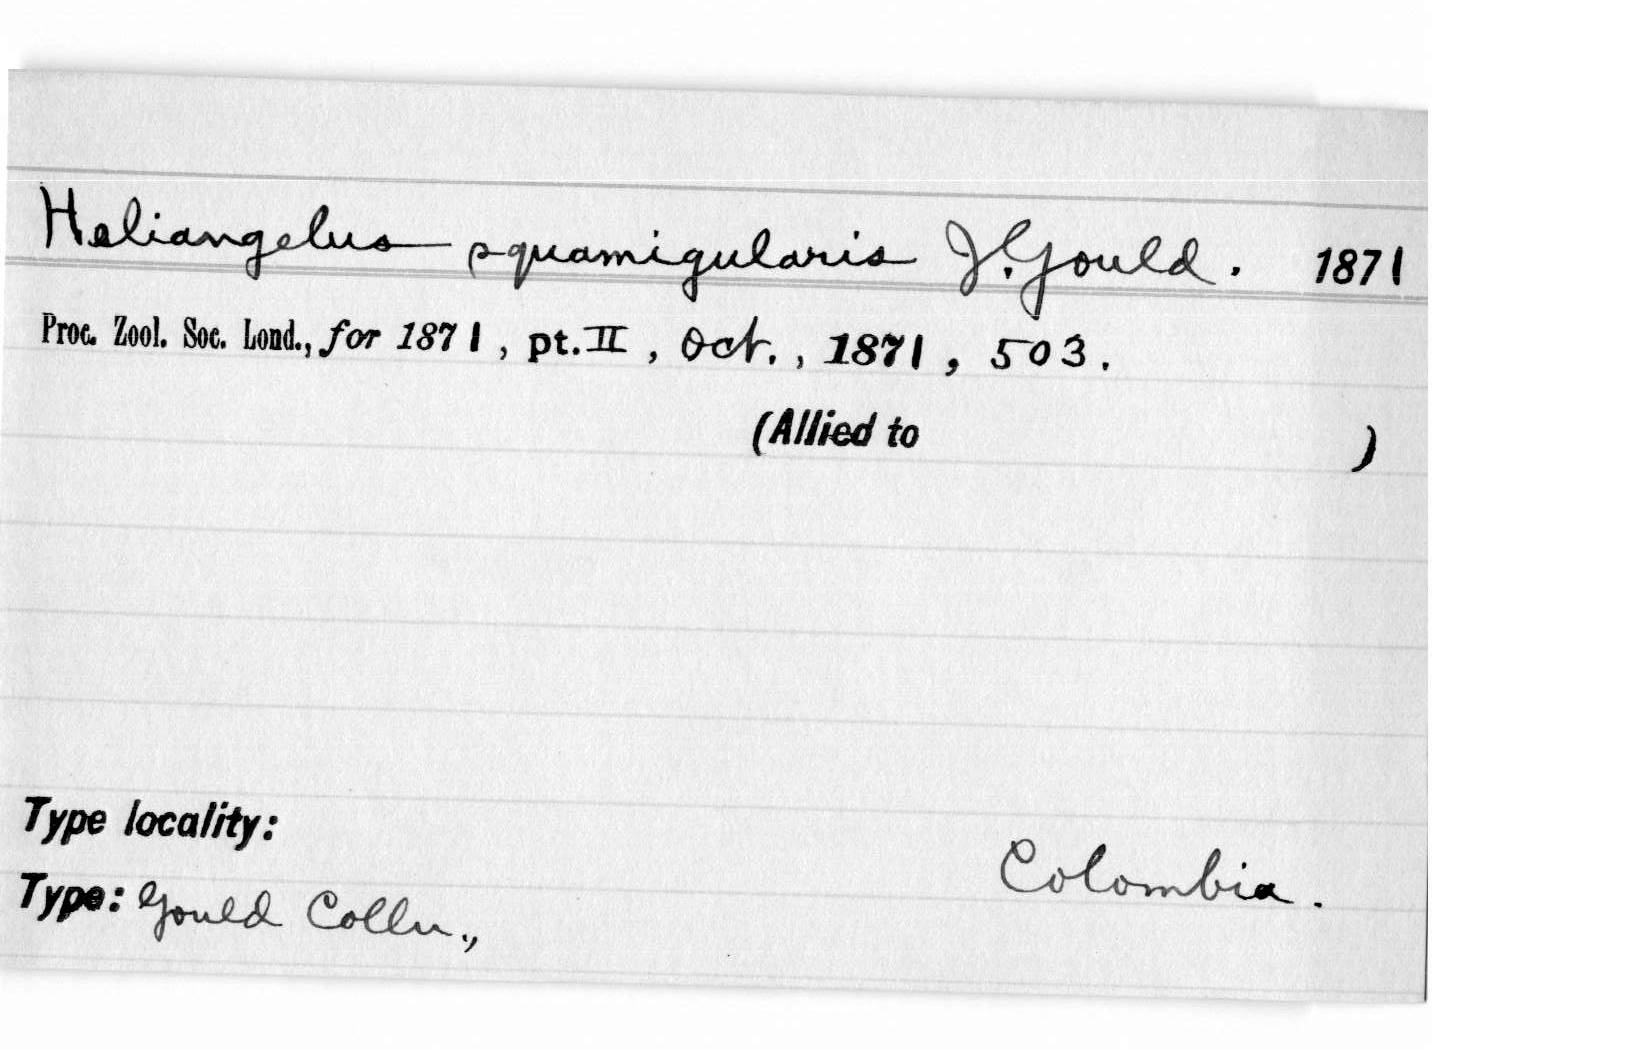 Heliangelus squamigularis J. Gould. 1871
Proc. Zool. Soc. Lond., for 1871, pt. II, Oct., 1871, 503.
(Allied to )
Type locality:
Colombia.
Type: Gould Colln.,